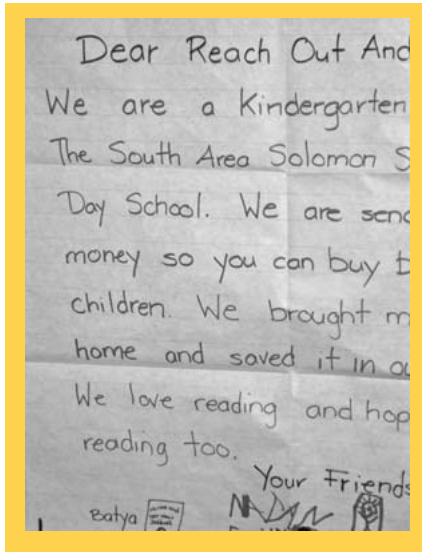 Dear Reach Out And
We are a Kindergarten
The South Area Solomon S
Day School. We are send
money so you can buy b
children. We brought m
home and saved it in ou
We love reading and hop
reading too.
Your Friends
Batya NADAV